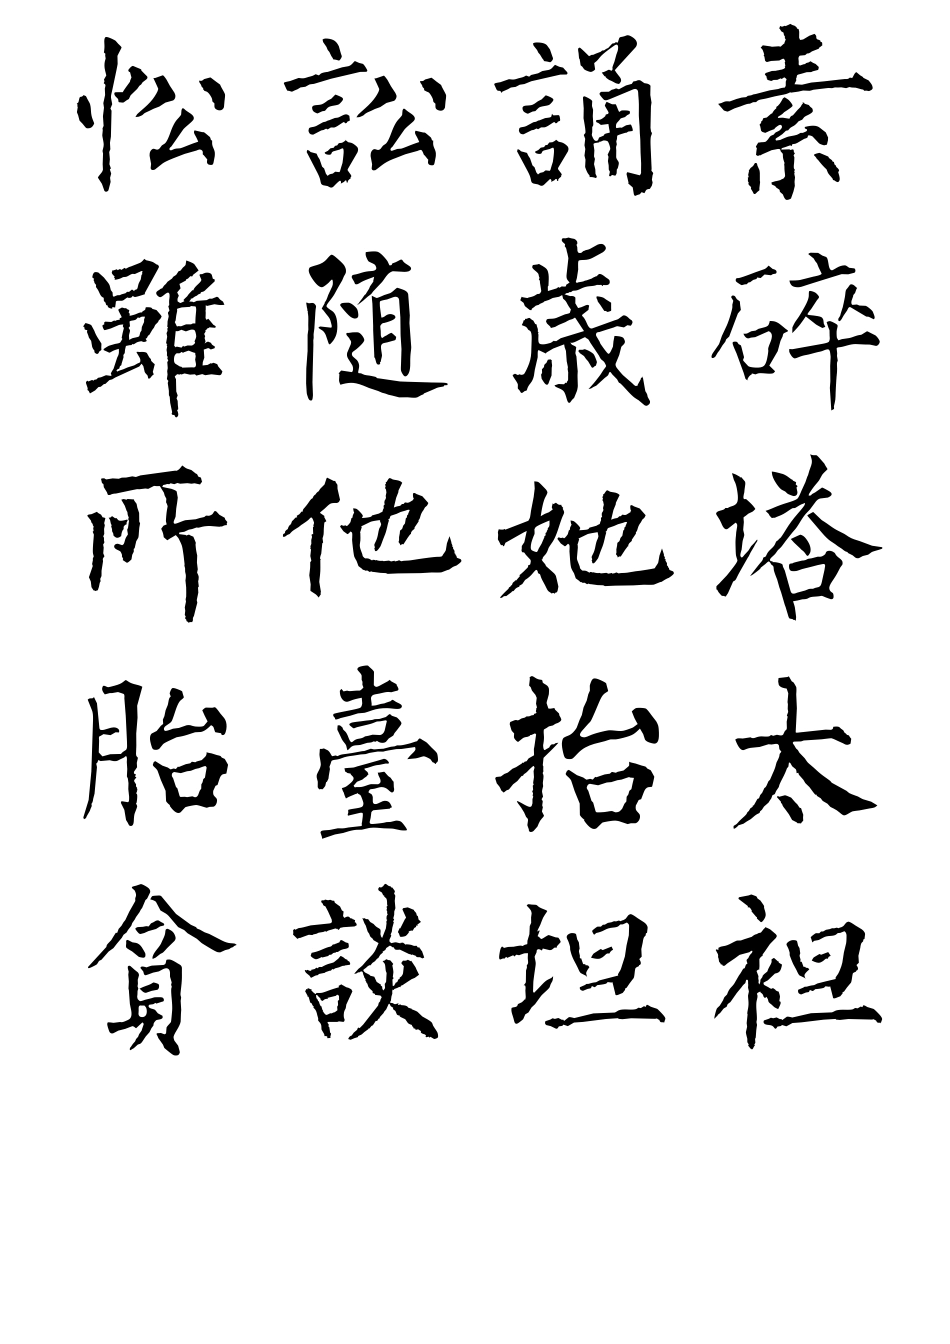 忪訟誦素
雖随歳碎
所他她塔
胎臺抬太
貪談坦袒